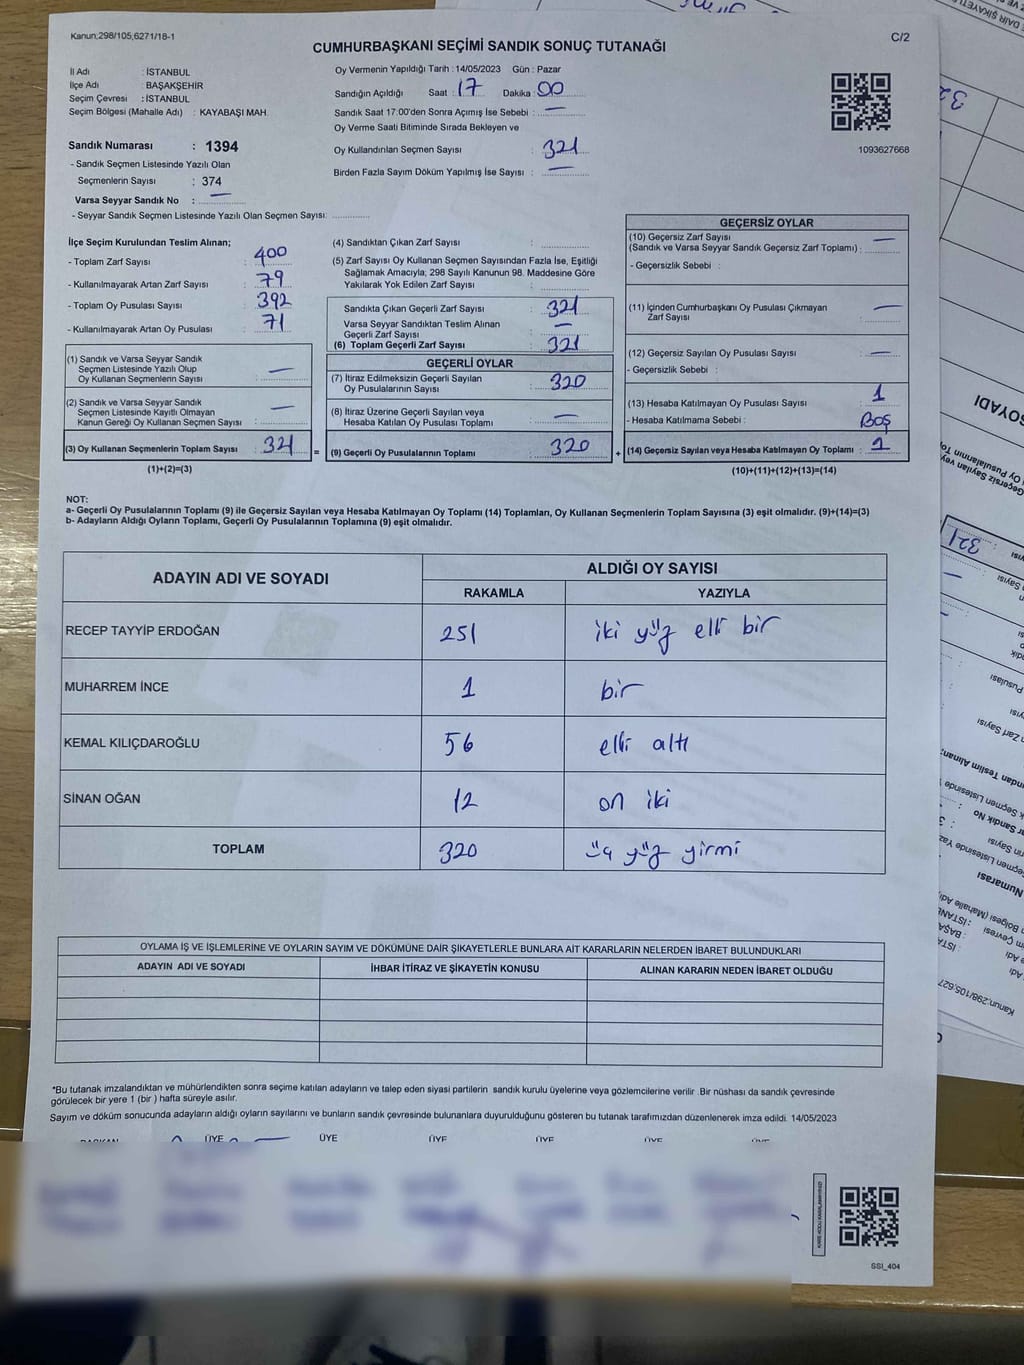 Kanun;298/105,6271/18-1
C/2
CUMHURBAŞKANI SEÇİMİ SANDIK SONUÇ TUTANAĞI
İl Adı : İSTANBUL
İlçe Adı : BAŞAKŞEHİR
Seçim Çevresi : İSTANBUL
Seçim Bölgesi (Mahalle Adı) : KAYABAŞI MAH.
Sandık Numarası : 1394
- Sandık Seçmen Listesinde Yazılı Olan
Seçmenlerin Sayısı : 374
Varsa Seyyar Sandık No : —
- Seyyar Sandık Seçmen Listesinde Yazılı Olan Seçmen Sayısı:
Oy Vermenin Yapıldığı Tarih : 14/05/2023 Gün : Pazar
Sandığın Açıldığı Saat : 17 Dakika : 00
Sandık Saat 17.00'den Sonra Açımış İse Sebebi : —
Oy Verme Saati Bitiminde Sırada Bekleyen ve
Oy Kullandırılan Seçmen Sayısı : 321
Birden Fazla Sayım Döküm Yapılmış İse Sayısı : —
1093627668
İlçe Seçim Kurulundan Teslim Alınan;
- Toplam Zarf Sayısı : 400
- Kullanılmayarak Artan Zarf Sayısı : 79
- Toplam Oy Pusulası Sayısı : 392
- Kullanılmayarak Artan Oy Pusulası : 71
(1) Sandık ve Varsa Seyyar Sandık
Seçmen Listesinde Yazılı Olup
Oy Kullanan Seçmenlerin Sayısı : —
(2) Sandık ve Varsa Seyyar Sandık
Seçmen Listesinde Kayıtlı Olmayan
Kanun Gereği Oy Kullanan Seçmen Sayısı : —
(3) Oy Kullanan Seçmenlerin Toplam Sayısı : 321
(1)+(2)=(3)
(4) Sandıktan Çıkan Zarf Sayısı :
(5) Zarf Sayısı Oy Kullanan Seçmen Sayısından Fazla İse, Eşitliği
Sağlamak Amacıyla; 298 Sayılı Kanunun 98. Maddesine Göre
Yakılarak Yok Edilen Zarf Sayısı :
Sandıkta Çıkan Geçerli Zarf Sayısı : 321
Varsa Seyyar Sandıktan Teslim Alınan
Geçerli Zarf Sayısı : —
(6) Toplam Geçerli Zarf Sayısı : 321
GEÇERLİ OYLAR
(7) İtiraz Edilmeksizin Geçerli Sayılan
Oy Pusulalarının Sayısı : 320
(8) İtiraz Üzerine Geçerli Sayılan veya
Hesaba Katılan Oy Pusulası Toplamı : —
= (9) Geçerli Oy Pusulalarının Toplamı : 320
GEÇERSİZ OYLAR
(10) Geçersiz Zarf Sayısı
(Sandık ve Varsa Seyyar Sandık Geçersiz Zarf Toplamı) : —
- Geçersizlik Sebebi :
(11) İçinden Cumhurbaşkanı Oy Pusulası Çıkmayan
Zarf Sayısı : —
(12) Geçersiz Sayılan Oy Pusulası Sayısı : —
- Geçersizlik Sebebi :
(13) Hesaba Katılmayan Oy Pusulası Sayısı : 1
- Hesaba Katılmama Sebebi : Boş
+ (14) Geçersiz Sayılan veya Hesaba Katılmayan Oy Toplamı : 1
(10)+(11)+(12)+(13)=(14)
NOT:
a- Geçerli Oy Pusulalarının Toplamı (9) ile Geçersiz Sayılan veya Hesaba Katılmayan Oy Toplamı (14) Toplamları, Oy Kullanan Seçmenlerin Toplam Sayısına (3) eşit olmalıdır. (9)+(14)=(3)
b- Adayların Aldığı Oyların Toplamı, Geçerli Oy Pusulalarının Toplamına (9) eşit olmalıdır.
ADAYIN ADI VE SOYADI
ALDIĞI OY SAYISI
RAKAMLA YAZIYLA
RECEP TAYYİP ERDOĞAN 251 iki yüz elli bir
MUHARREM İNCE 1 bir
KEMAL KILIÇDAROĞLU 56 elli altı
SİNAN OĞAN 12 on iki
TOPLAM 320 üç yüz yirmi
OYLAMA İŞ VE İŞLEMLERİNE VE OYLARIN SAYIM VE DÖKÜMÜNE DAİR ŞİKAYETLERLE BUNLARA AİT KARARLARIN NELERDEN İBARET BULUNDUKLARI
ADAYIN ADI VE SOYADI İHBAR İTİRAZ VE ŞİKAYETİN KONUSU ALINAN KARARIN NEDEN İBARET OLDUĞU
*Bu tutanak imzalandıktan ve mühürlendikten sonra seçime katılan adayların ve talep eden siyasi partilerin sandık kurulu üyelerine veya gözlemcilerine verilir. Bir nüshası da sandık çevresinde
görülecek bir yere 1 (bir) hafta süreyle asılır.
Sayım ve döküm sonucunda adayların aldığı oyların sayılarını ve bunların sandık çevresinde bulunanlara duyurulduğunu gösteren bu tutanak tarafımızdan düzenlenerek imza edildi. 14/05/2023
BAŞKAN ÜYE ÜYE ÜYE ÜYE ÜYE ÜYE
SSI_404